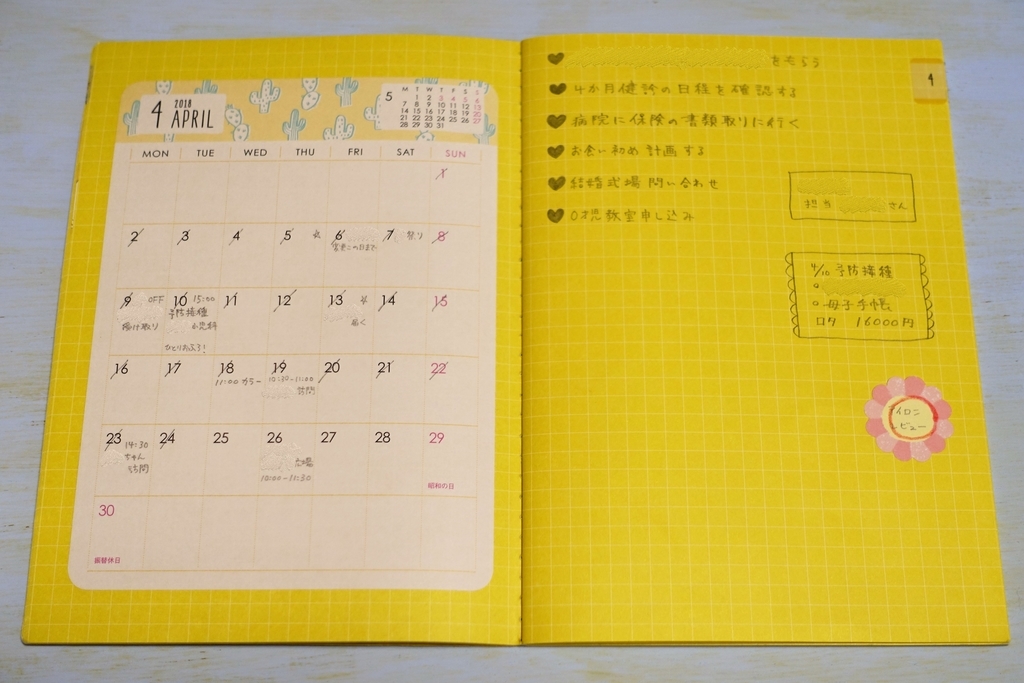 4 2018 APRIL
5
M T W T F S S
1 2 3 4 5 6
7 8 9 10 11 12 13
14 15 16 17 18 19 20
21 22 23 24 25 26 27
28 29 30 31
MON TUE WED THU FRI SAT SUN
1
2 3 4 5 6 7 8
祭り
変更この日まで
9 OFF 10 15:00 11 12 13 14 15
予防接種
掛け取り 小児科 届く
ひとりおふろ!
16 17 18 19 20 21 22
11:00 カラー 10:30-11:00
訪問
23 24 25 26 27 28 29
14:30
ちゃん 広場
訪問 10:00-11:30
昭和の日
30
振替休日
をもらう
4か月健診の日程を確認する
病院に保険の書類取りに行く
お食い初め計画する
結婚式場問い合わせ
0才児教室申し込み
4
担当 さん
4/10 予防接種
母子手帳
ロタ 16000円
イロン
レビュー